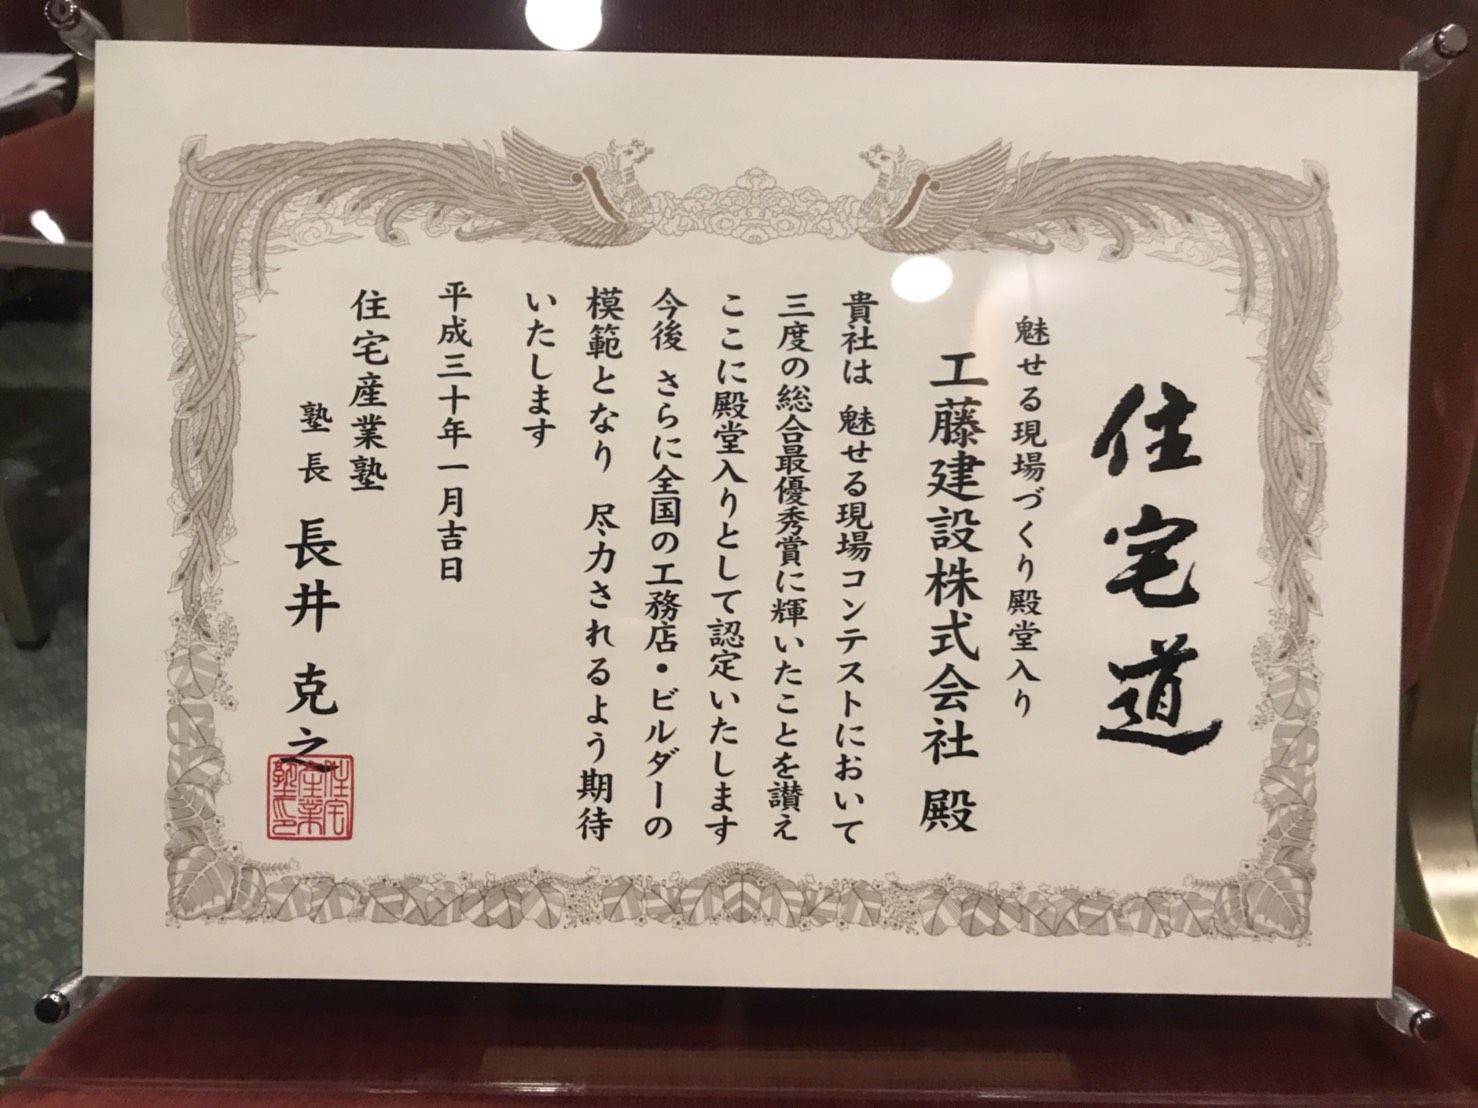 住宅道
魅せる現場づくり殿堂入り
工藤建設株式会社 殿
貴社は 魅せる現場コンテストにおいて
三度の総合最優秀賞に輝いたことを讃え
ここに殿堂入りとして認定いたします
今後 さらに全国の工務店・ビルダーの
模範となり 尽力されるよう期待
いたします
平成三十年一月吉日
住宅産業塾
塾長 長井 克之
住宅
産業
塾印